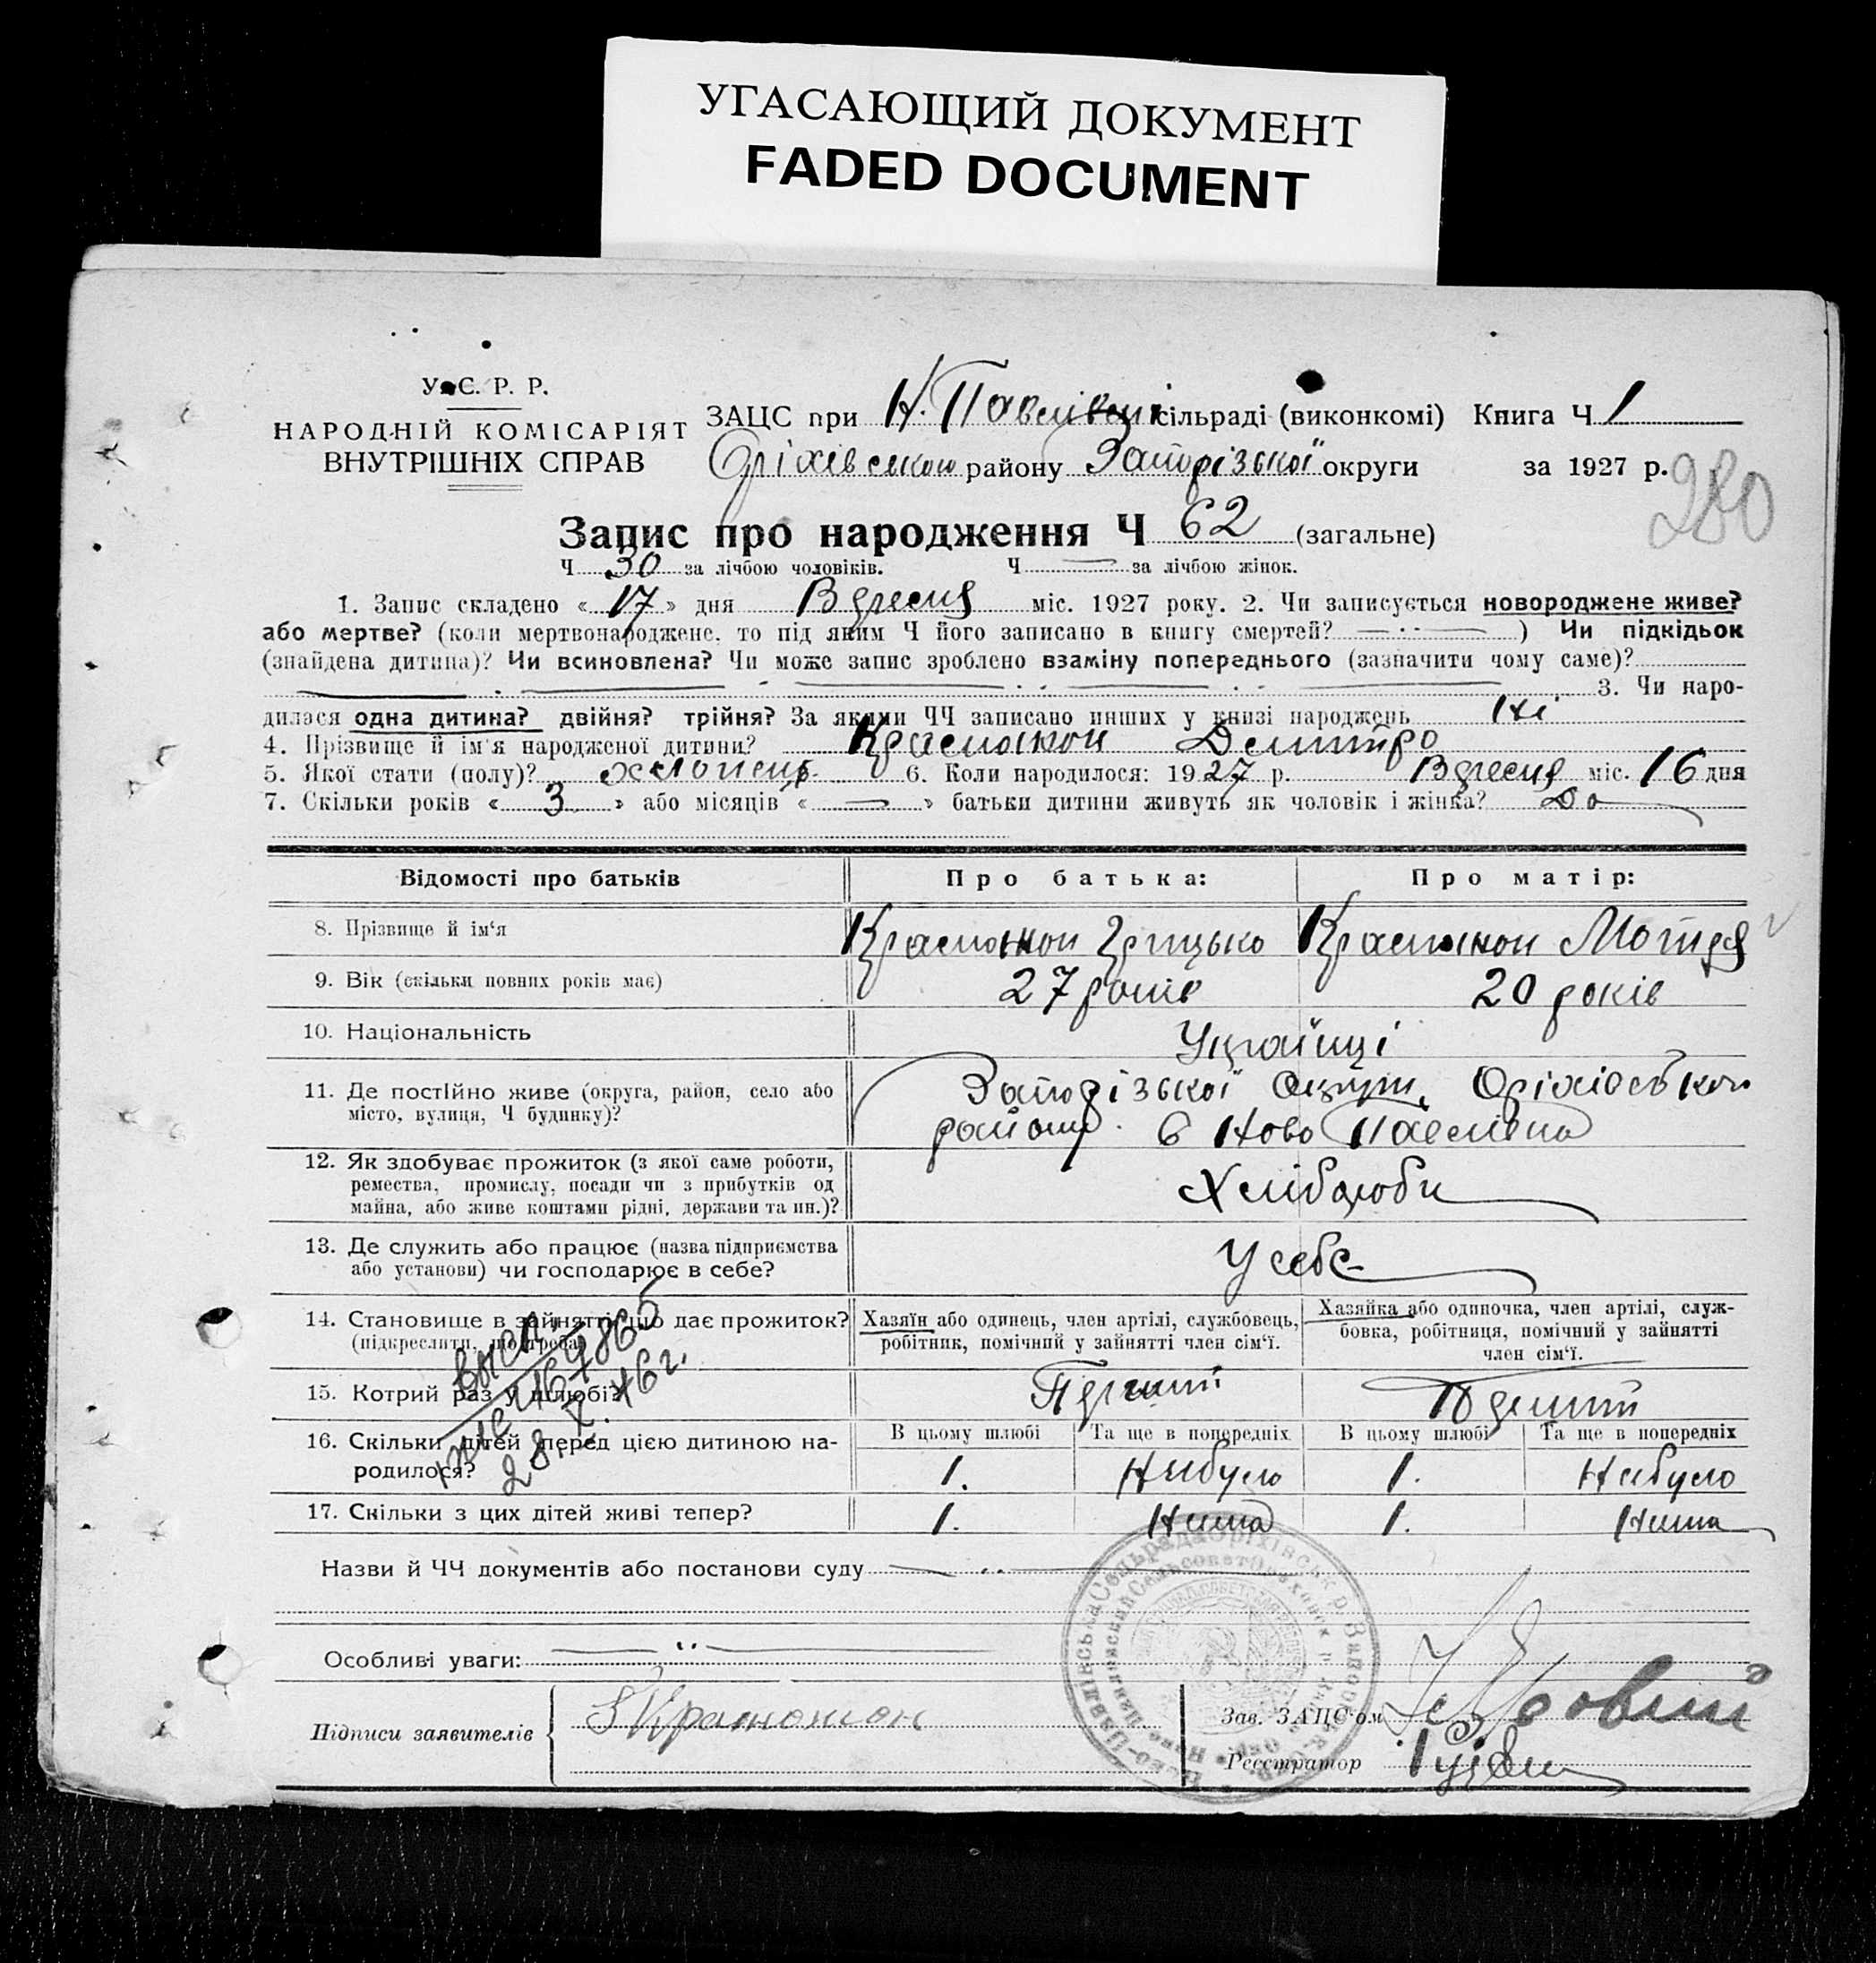 УГАСАЮЩИЙ ДОКУМЕНТ
FADED DOCUMENT
У. С. Р. Р.
НАРОДНІЙ КОМІСАРІЯТ
ВНУТРІШНІХ СПРАВ
ЗАЦС при Н. Павлівській сільраді (виконкомі) Книга Ч 1
Оріхівського району Запорізької округи за 1927 р.
280
Запис про народження Ч 62 (загальне)
Ч 30 за лічбою чоловіків. Ч — за лічбою жінок.
1. Запис складено « 17 » дня Вересня міс. 1927 року. 2. Чи записується новороджене живе?
або мертве? (коли мертвонароджене, то під яким Ч його записано в книгу смертей? — · · — ) Чи підкідьок
(знайдена дитина)? Чи всиновлена? Чи може запис зроблено взаміну попереднього (зазначити чому саме)?
3. Чи наро-
дилася одна дитина? двійня? трійня? За якими ЧЧ записано инших у книзі народжень
4. Прізвище й ім'я народженої дитини? Дмитро
5. Якої стати (полу)? хлопець 6. Коли народилося: 1927 р. Вересня міс. 16 дня
7. Скільки років « 3 » або місяців « — » батьки дитини живуть як чоловік і жінка? Да
Відомості про батьків
Про батька:
Про матір:
8. Прізвище й ім'я
Грицько
Мотря
9. Вік (скільки повних років має)
27 років
20 років
10. Національність
Українці
11. Де постійно живе (округа, район, село або
місто, вулиця, Ч будинку)?
Запорізької округи, Оріхівського
району с Ново Павлівка
12. Як здобуває прожиток (з якої саме роботи,
ремества, промислу, посади чи з прибутків од
майна, або живе коштами рідні, держави та ин.)?
Хлібороби
13. Де служить або працює (назва підприємства
або установи) чи господарює в себе?
У себе
14. Становище в зайнятті, що дає прожиток?
(підкреслити, що треба)
Хазяїн або одинець, член артілі, службовець,
робітник, помічний у зайнятті член сім'ї.
Хазяйка або одиночка, член артілі, служ-
бовка, робітниця, помічний у зайнятті
член сім'ї.
28. X. 46 г.
15. Котрий раз у шлюбі?
Перший
Перший
16. Скільки дітей перед цією дитиною на-
родилося?
В цьому шлюбі
Та ще в попередніх
В цьому шлюбі
Та ще в попередніх
1.
Небуло
1.
Небуло
17. Скільки з цих дітей живі тепер?
1.
Нима
1.
Нима
Назви й ЧЧ документів або постанови суду
Особливі уваги:
Підписи заявителів
Зав. ЗАЦС'ом
Реєстратор